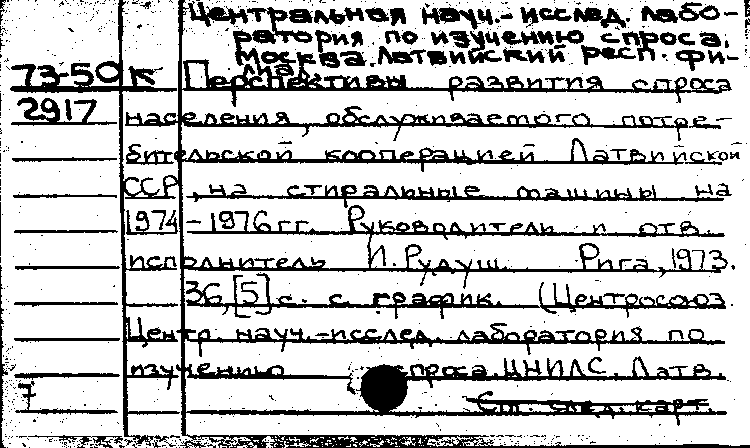 Центральная науч.-исслед. лабо-
ратория по изучению спроса.
Москва. Латвийский респ. фи-
лиал.
73-50 к Перспективы развития спроса
2917 населения, обслуживаемого потре-
бительской кооперацией Латвийской
ССР, на стиральные машины на
1974-1976 гг. Руководители и отв.
исполнитель И. Рудуш. Рига, 1973.
36, [5] с. с график. (Центросоюз
Центр. науч.-исслед. лаборатория по
изучению спроса. ЦНИЛС. Латв.
7 См. след. карт.